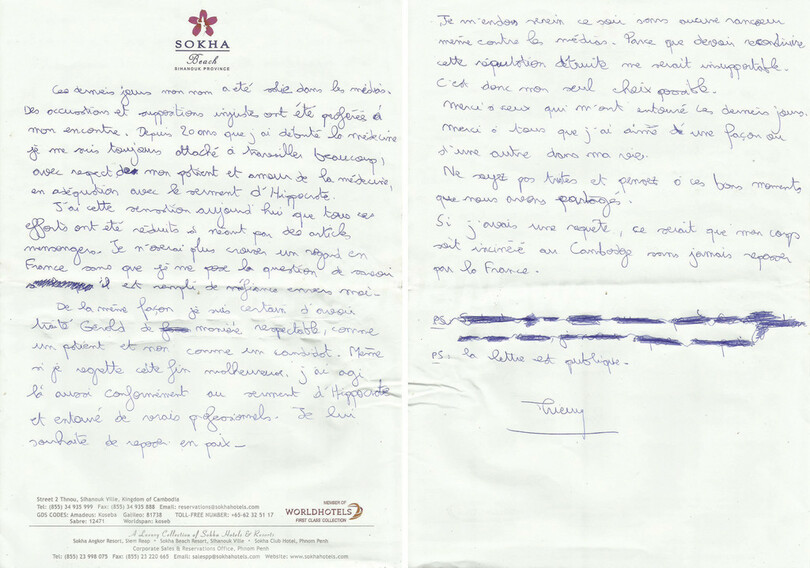 SOKHA
Beach
SIHANOUK PROVINCE
Ces derniers jours mon nom a été sali dans les médias.
Des accusations et suppositions injustes ont été proférées à
mon encontre. Depuis 20 ans que j'ai débuté la médecine
je me suis toujours attaché à travailler beaucoup,
avec respect de mon patient et amour de la médecine,
en adéquation avec le serment d'Hippocrate.
J'ai cette sensation aujourd'hui que tous ces
efforts ont été réduits à néant par des articles
mensongers. Je n'oserai plus croiser un regard en
France sans que je me pose la question de savoir
s'il est rempli de méfiance envers moi.
De la même façon je suis certain d'avoir
traité Gérald de manière respectable, comme
un patient et non comme un candidat. Même
si je regrette cette fin malheureuse, j'ai agi
là aussi conformément au serment d'Hippocrate
et entouré de vrais professionnels. Je lui
souhaite de reposer en paix_
Street 2 Thnou, Sihanouk Ville, Kingdom of Cambodia
Tel: (855) 34 935 999 Fax: (855) 34 935 888 Email: reservations@sokhahotels.com
GDS CODES: Amadeus: Koseba Galileo: 81738 TOLL-FREE NUMBER: +65-62 32 51 17
Sabre: 12471 Worldspan: koseb
MEMBER OF
WORLDHOTELS
FIRST CLASS COLLECTION
A Luxury Collection of Sokha Hotels & Resorts
Sokha Angkor Resort, Siem Reap • Sokha Beach Resort, Sihanouk Ville • Sokha Club Hotel, Phnom Penh
Corporate Sales & Reservations Office, Phnom Penh
Tel: (855) 23 998 075 Fax: (855) 23 220 665 Email: salespp@sokhahotels.com Website: www.sokhahotels.com
Je m'endors serein ce soir sans aucune rancoeur
même contre les médias. Parce que devoir reconstruire
cette réputation détruite me serait insupportable.
C'est donc mon seul choix possible.
Merci à ceux qui m'ont entouré ces derniers jours.
Merci à tous que j'ai aimé d'une façon ou
d'une autre dans ma vie.
Ne soyez pas tristes et pensez à ces bons moments
que nous avons partagés.
Si j'avais une requête, ce serait que mon corps
soit incinéré au Cambodge sans jamais repasser
par la France.
PS:
PS: la lettre est publique.
Thierry